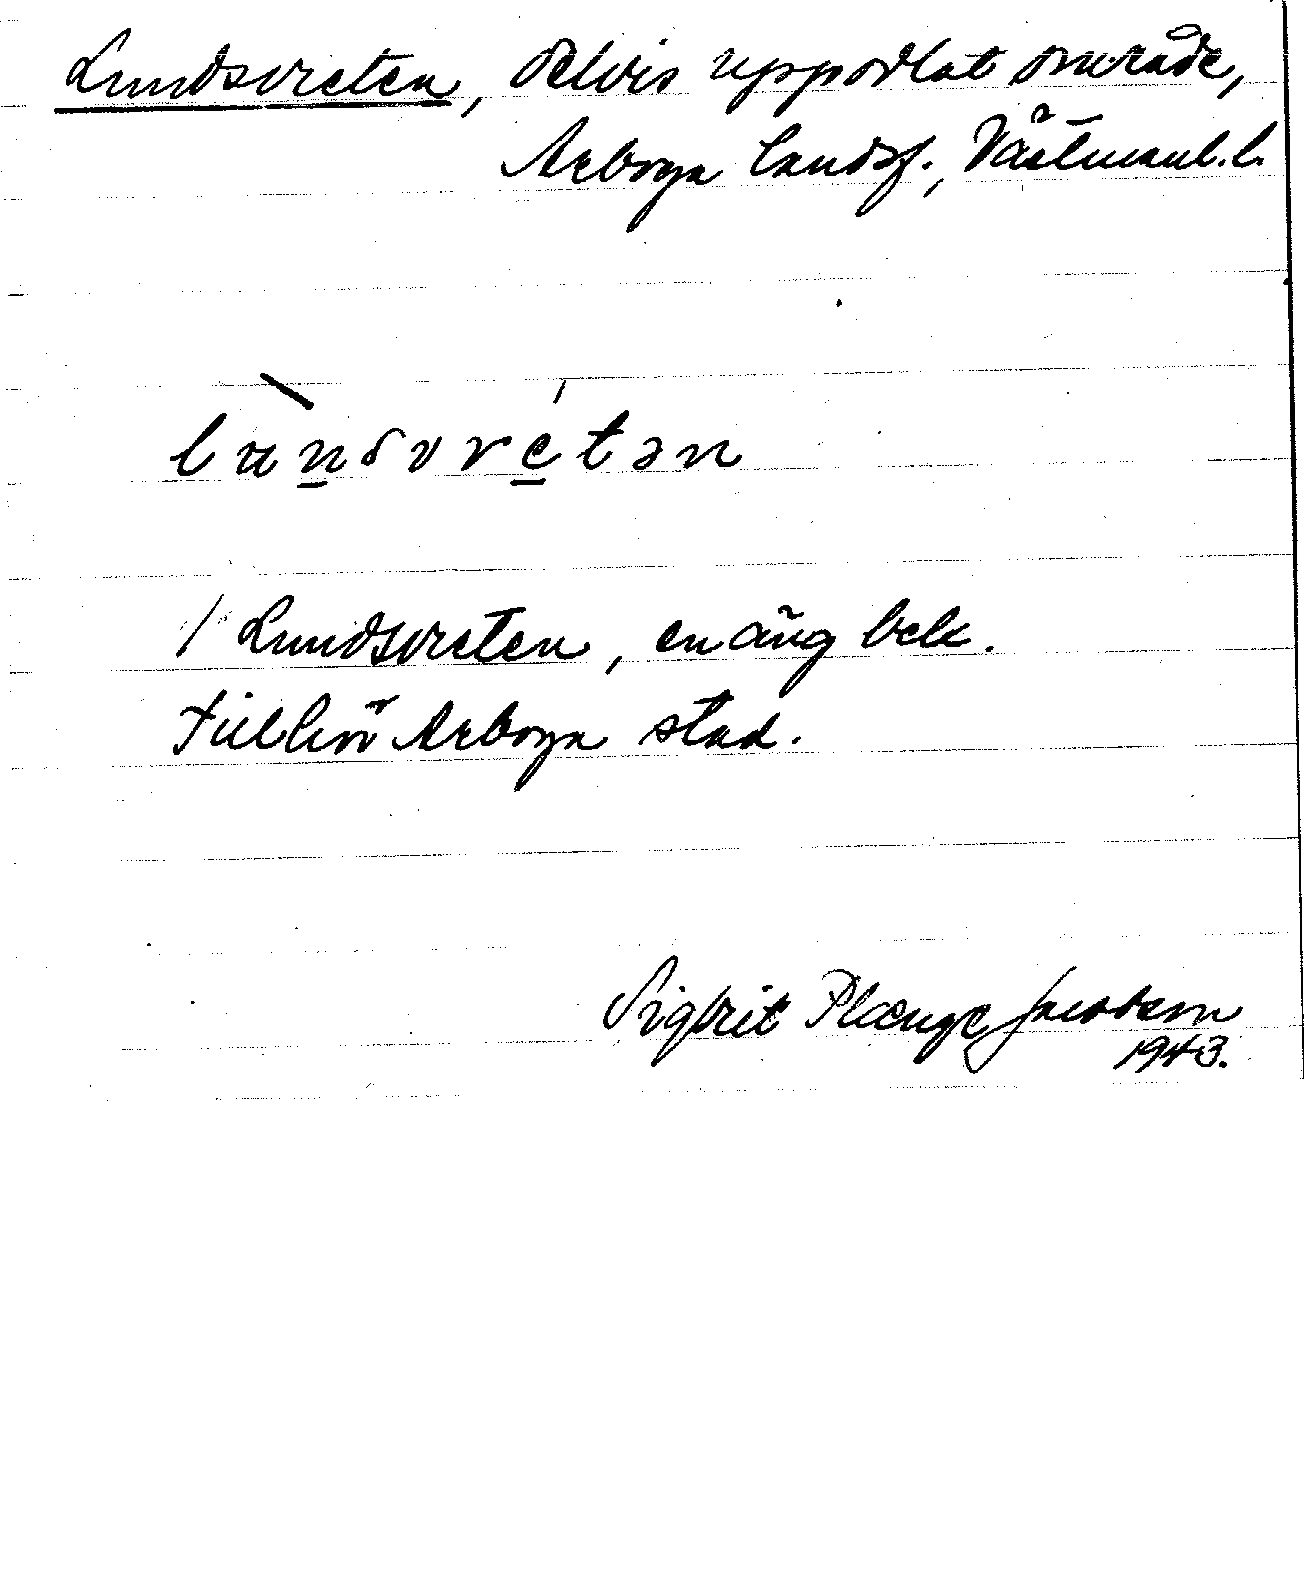 Lundsvreten, delvis uppodlat område,
Arboga landsf., Västmanl. l.
lunsvretən
/ Lundsvreten, en äng bel.
Tillhör Arboga stad.
Sigbrit Plænge Jacobson
1943.